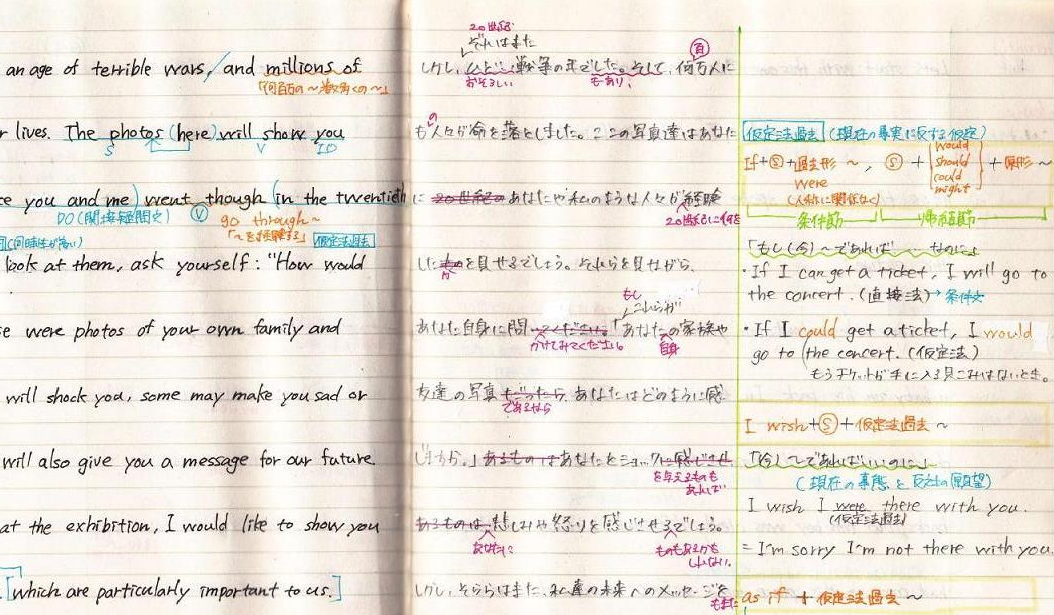 an age of terrible wars, and millions of
「何百万の～数多くの～」
r lives. The photos (here) will show you
S V IO
e you and me) went though (in the twentieth
DO (間接疑問文) V go through～
「～を経験する」 仮定法過去
look at them, ask yourself : "How would
e were photos of your own family and
will shock you, some may make you sad or
will also give you a message for our future
at the exhibition, I would like to show you
[which are particularly important to us.]
20世紀
それはまた
しかし、ひどい戦争の年でした。そして、何万人に
百
おそろしい もあり、
の
も人々が命を落としました。ここの写真達はあなた
に 20世紀の あなたや私のような人々が経験
20世紀に何を
したものを見せるでしょう。それらを見ながら、
か
もし
これらが
あなた自身に問 「あなたの家族や
かけてみてください。 自身
友達の写真だったら、あなたはどのように感
であるなら
じますか。」あるものはあなたをショックに感じさせ
を与えるものも
あれば
あるものは、悲しみや怒りを感じさせるでしょう。
あなたに ものもあるかも
しれない。
しかし、それらはまた、私達の未来へのメッセージを
もまた
仮定法過去 (現在の事実に反する仮定)
If+S+過去形～, S + would should could might + 原形～
were
(人称に関係なく)
条件節 帰結節
「もし(今)～であれば… なのに」
・If I can get a ticket, I will go to
the concert. (直接法)→条件文
・If I could get a ticket, I would
go to the concert. (仮定法)
もうチケットが手に入る見こみはないとき。
I wish+S+仮定法過去～
「(今)～であればいいのに」
(現在の事態と反対の願望)
I wish I were there with you.
(仮定法過去)
= I'm sorry I'm not there with you.
as if + 仮定法過去～